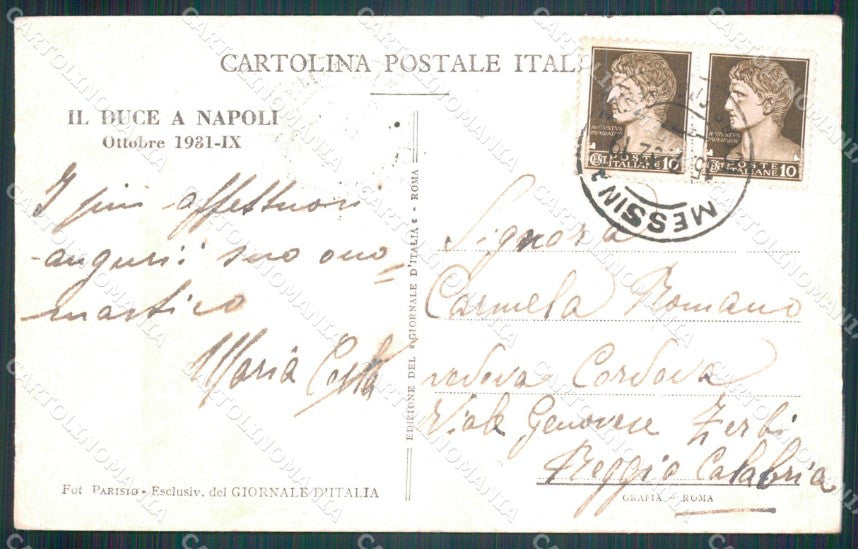 CARTOLINA POSTALE ITAL
IL DUCE A NAPOLI
Ottobre 1931-IX
I più affettuosi
auguri: suo ono=
mastico
Maria Costa
Fot PARISIO - Esclusiv. del GIORNALE D'ITALIA
EDIZIONE DEL « GIORNALE D'ITALIA « - ROMA
AVGVSTVS
IMPERATOR
POSTE
ITALIANE 10
AVGVSTVS
IMPERATOR
POSTE
ITALIANE 10
MESSINA
Signora
Carmela Romano
vedova Cordova
Viale Genovese Zerbi
Reggio Calabria
GRAFIA - ROMA
CARTOLINOMANIA